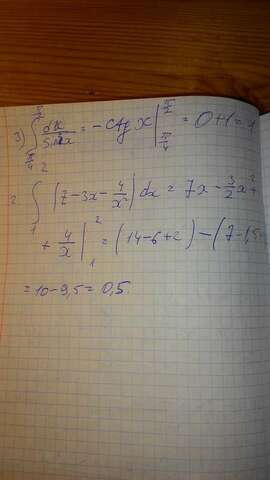 3) ∫ π/4 π/2 dx/sin²x = -ctg x | π/4 π/2 = 0+1=1
∫ 1 2 (7-3x-4/x²) dx = 7x - 3/2 x² +
+ 4/x | 1 2 = (14-6+2) - (7-1,5
= 10-9,5 = 0,5.